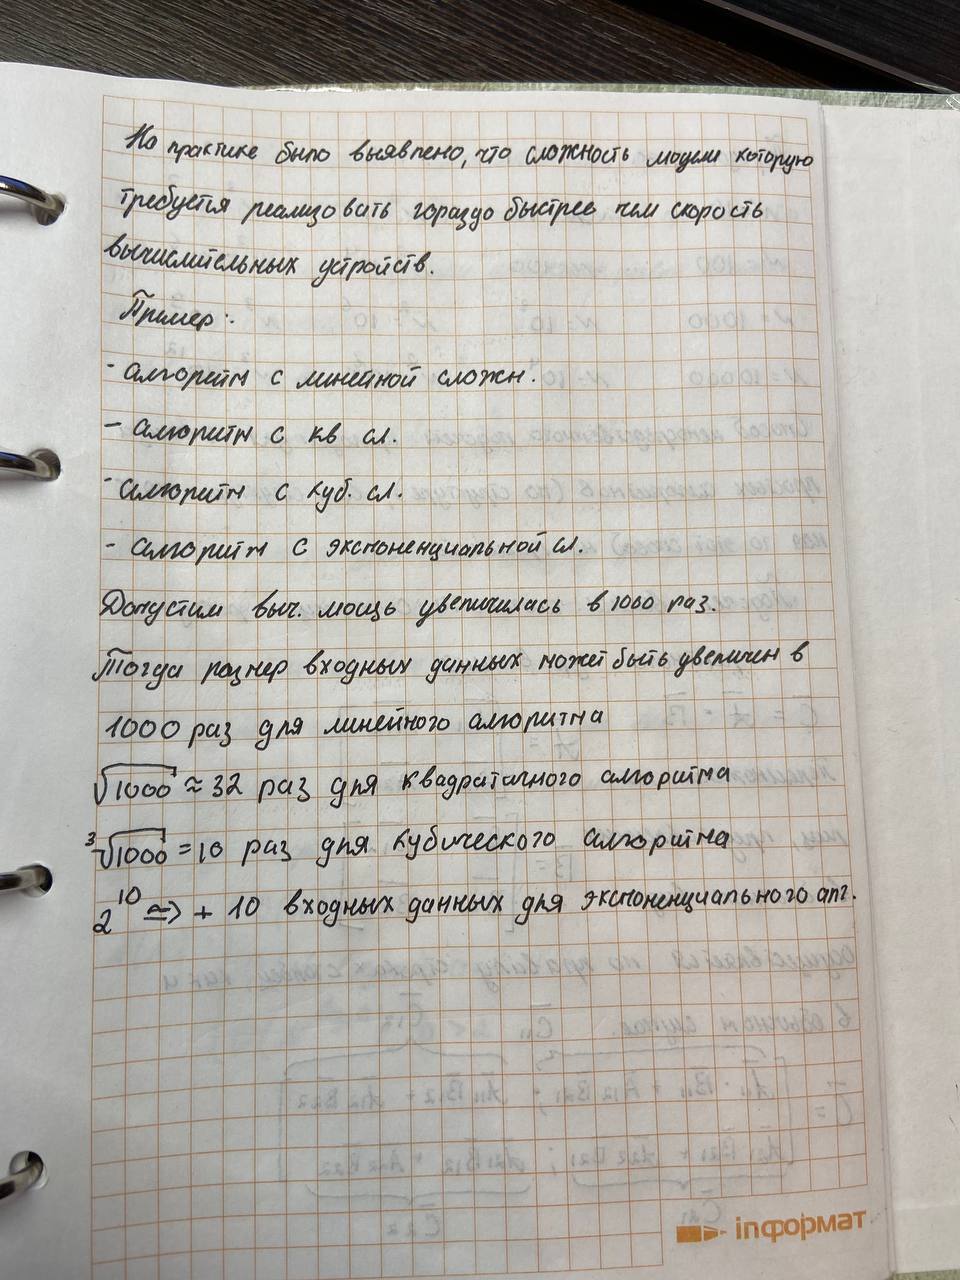 На практике было выявлено, что сложность модели которую
требуется реализовать гораздо быстрее чем скорость
вычислительных устройств.
Пример:
- алгоритм с линейной сложн.
- алгоритм с кв сл.
- алгоритм с куб. сл.
- алгоритм с экспоненциальной сл.
Допустим выч. мощь увеличилась в 1000 раз.
Тогда размер входных данных может быть увеличен в
1000 раз для линейного алгоритма
√1000 ≈ 32 раз для квадратичного алгоритма
³√1000 = 10 раз для кубического алгоритма
2¹⁰ ≃> + 10 входных данных для экспоненциального алг.
inформат